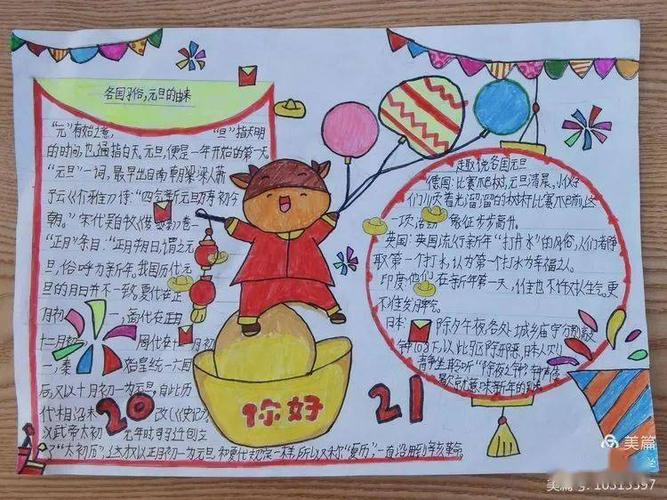 各国习俗,元旦的由来
"元"有始之意, "旦"指天明
的时间,也通指白天,元旦,便是一年开始的第一天
"元旦"一词,最早出自南朝梁人萧
子云《介雅》诗:"四气新元旦万寿初今
朝。"宋代吴自牧《梦粱录》卷一
"正月"条目:"正月朔日,谓之元
旦,俗呼为新年,我国历代元
旦的月日并不一致。夏代在正
月初一,商代在
十二月初一,周代在十一月初
一,秦始皇统一六国
后,又以十月初一为元旦,自此历
代相沿未改《史记》
汉武帝太初元年时,司
"太初历",这才以正月初一为元旦,和夏代规定一样,所以又称"夏历",一直沿用到辛亥革命
趣说各国元旦
德国:比赛爬树,元旦清晨,小伙子
们顺着光溜溜的树杆比赛爬高,这
一项活动象征步步高升。
英国:英国流行新年"打井水"的风俗,人们都争
取第一个打水,认为第一个打水为幸福之人。
印度:他们在新年第一天,谁也不许对人生气,更
不准发脾气。
日本:除夕午夜,各处城乡庙宇分别敲
钟108下,以此驱除邪恶,日本人
静坐聆听"除夜之钟"钟声
歇就意味新年的到来
你好
20
21
美篇
美篇号:10313597